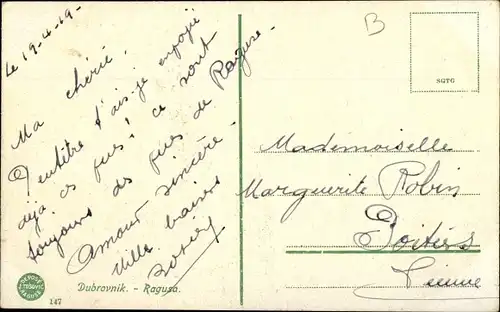 Le 19-4-19-
Ma chérie,
Peutêtre t'ais-je envoyé
déjà ces vues! ce sont
toujours des vues de Raguse.
Amour sincère.
Mille baisers
B
SGTG
Mademoiselle
Marguerite Robin
Poitiers
Vienne
Dubrovnik. - Ragusa.
147